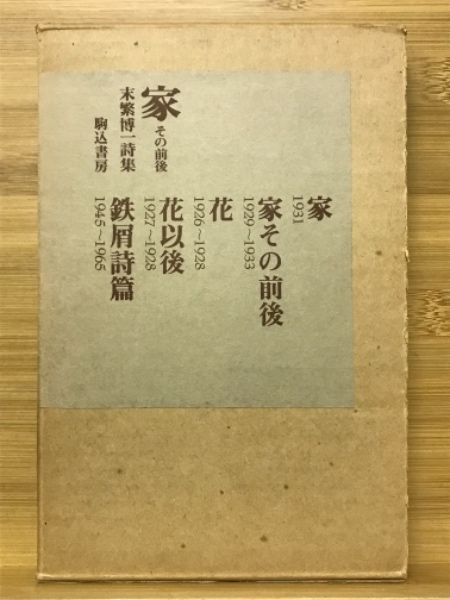 家
1931
家その前後
1929~1933
花
1926~1928
花以後
1927~1928
鉄屑詩篇
1945~1965
家 その前後
末繁博一詩集
駒込書房